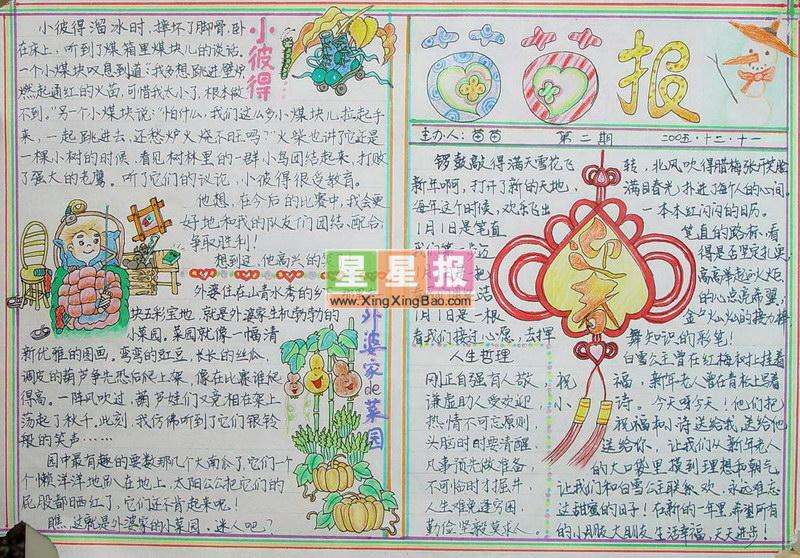 小彼得
小彼得溜冰时，摔坏了脚骨，卧
在床上，听到了煤箱里煤块儿的谈话。
一个小煤块叹息到道：我多想跳进壁炉
燃起通红的火苗，可惜我太小了，根本做
不到。”另一个小煤块说：“怕什么，我们这么多小煤块儿拉起手
来，一起跳进去，还愁炉火烧不旺吗？”火柴也讲了它还是
一棵小树的时候，看见树林里的一群小鸟团结起来，打败
了强大的老鹰。听了它们的议论，小彼得很受教育。
他想，在今后的比赛中，我会更
好地和我的队友们团结、配合，
争取胜利！
想到这，他高兴的
外婆家de菜园
外婆住在山青水秀的乡
块五彩宝地，就是外婆家生机勃勃的
小菜园。菜园就像一幅清
新优雅的图画，弯弯的豇豆，长长的丝瓜，
调皮的葫芦争先恐后爬上架，像在比赛谁爬
得高。一阵风吹过，葫芦娃们又竞相在架上
荡起了秋千。此刻，我仿佛听到了它们银铃
般的笑声……
园中最有趣的要数那几个大南瓜了，它们一个
个懒洋洋地趴在地上，太阳公公把它们的
屁股都晒红了，它们还不肯起来呢！
瞧，这就是外婆家的小菜园，迷人吧？
报
主办人：苗苗 第二期 2005.十二.十一
锣鼓敲得满天雪花飞转，北风吹得腊梅张开笑脸
新年啊，打开了新的天地，满目春光扑进了每个人的心间。
每年这个时候，欢乐飞出一本本红闪闪的日历。
1月1日是笔直笔直的路标，看
得是否坚定扎实
高高举起火炬
的心点亮希望，
1月1日是一根金夕火山火的接力棒
看我们接过心愿，去挥舞知识的彩笔！
迎春
人生哲理
刚正自强有人敬
谦虚助人受欢迎
热情不可忘原则
头脑时时要清醒
凡事预先做准备
不可临时才掘井
人生难免逢穷困
白雪公主曾在红梅树上挂着
祝福，新年老人曾在青松上写着
小诗。今天呀今天！他们把
祝福和小诗送给我，送给他
送给你，让我们从新年老人
的大口袋里摸到理想和朝气
让我们和白雪公主联欢，永远难忘
这甜蜜的日子！在新的一年里，希望所有
的小朋友大朋友生活幸福，天天进步！
星星报
www.XingXingBao.com